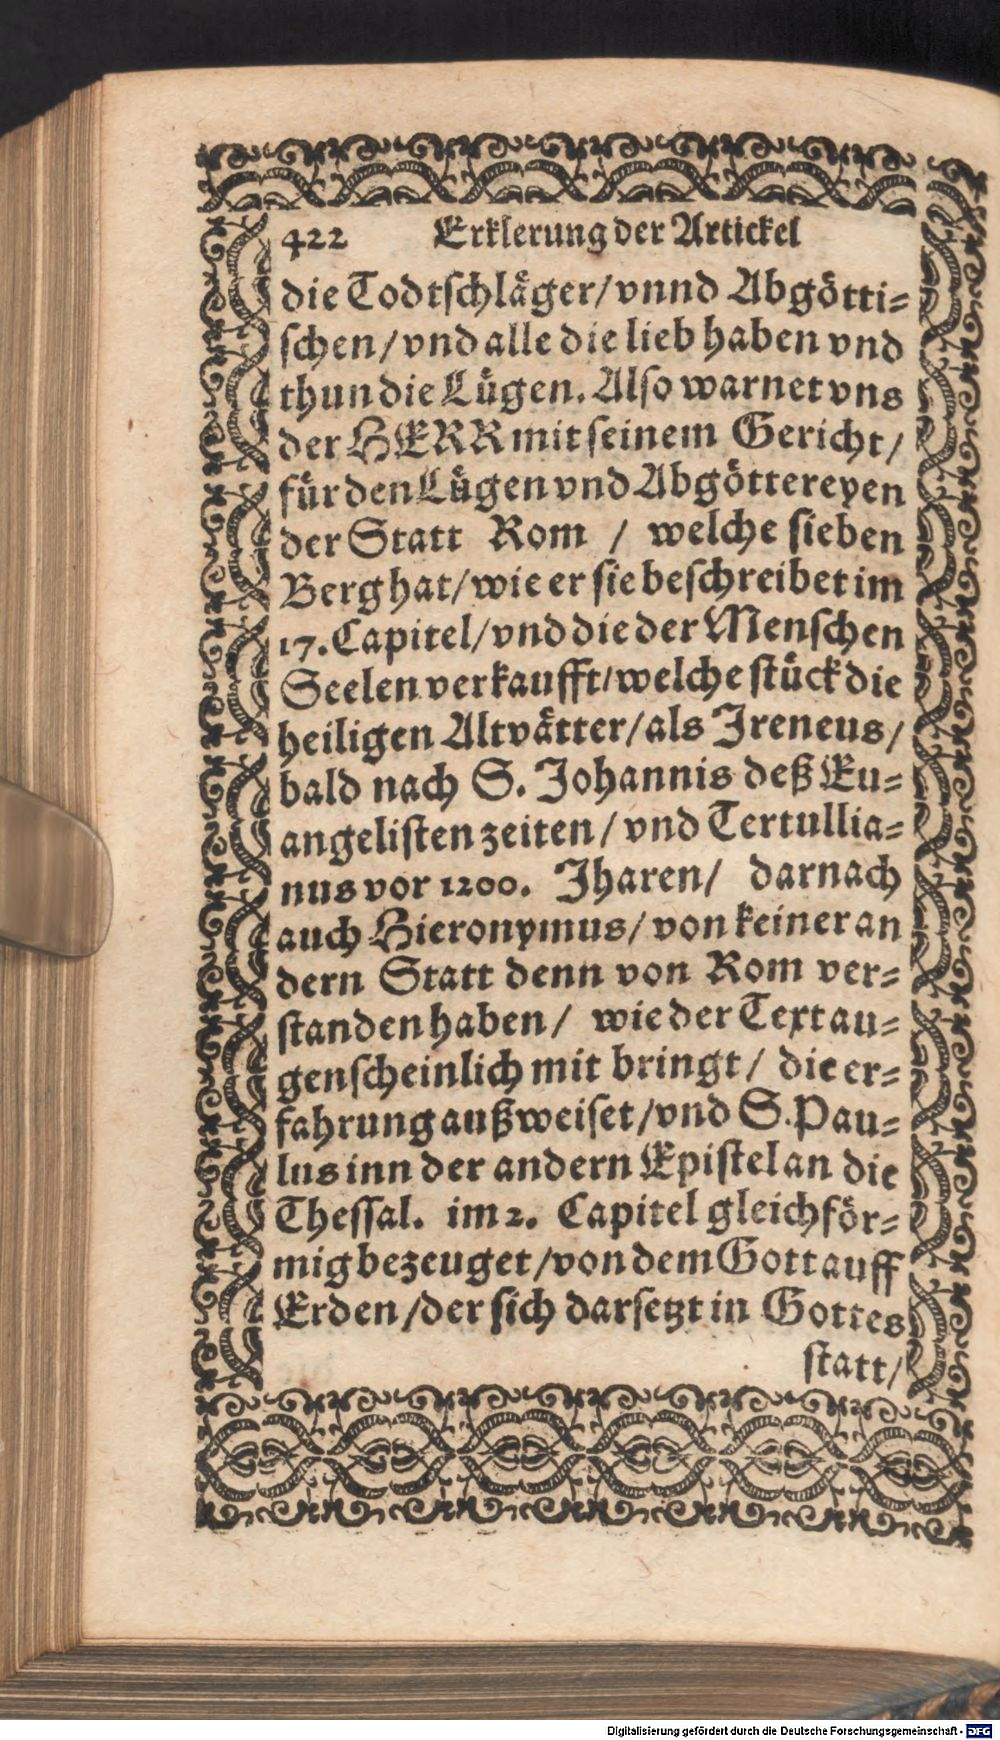 422 Erklerung der Artickel
die Todtschläger/ vnnd Abgötti-
schen/ vnd alle die lieb haben vnd
thun die Lügen. Also warnet vns
der HERR mit seinem Gericht/
für den Lügen vnd Abgöttereyen
der Statt Rom / welche sieben
Berg hat/ wie er sie beschreibet im
17. Capitel/ vnd die der Menschen
Seelen verkaufft/ welche stück die
heiligen Altvätter/ als Ireneus/
bald nach S. Johannis deß Eu-
angelisten zeiten/ vnd Tertullia-
nus vor 1200. Jharen/ darnach
auch Hieronymus/ von keiner an
dern Statt denn von Rom ver-
standen haben/ wie der Text au-
genscheinlich mit bringt/ die er-
fahrung außweiset/ vnd S. Pau-
lus inn der andern Epistel an die
Thessal. im 2. Capitel gleichför-
mig bezeuget/ von dem Gott auff
Erden/ der sich darsetzt in Gottes
statt/
Digitalisierung gefördert durch die Deutsche Forschungsgemeinschaft - DFG